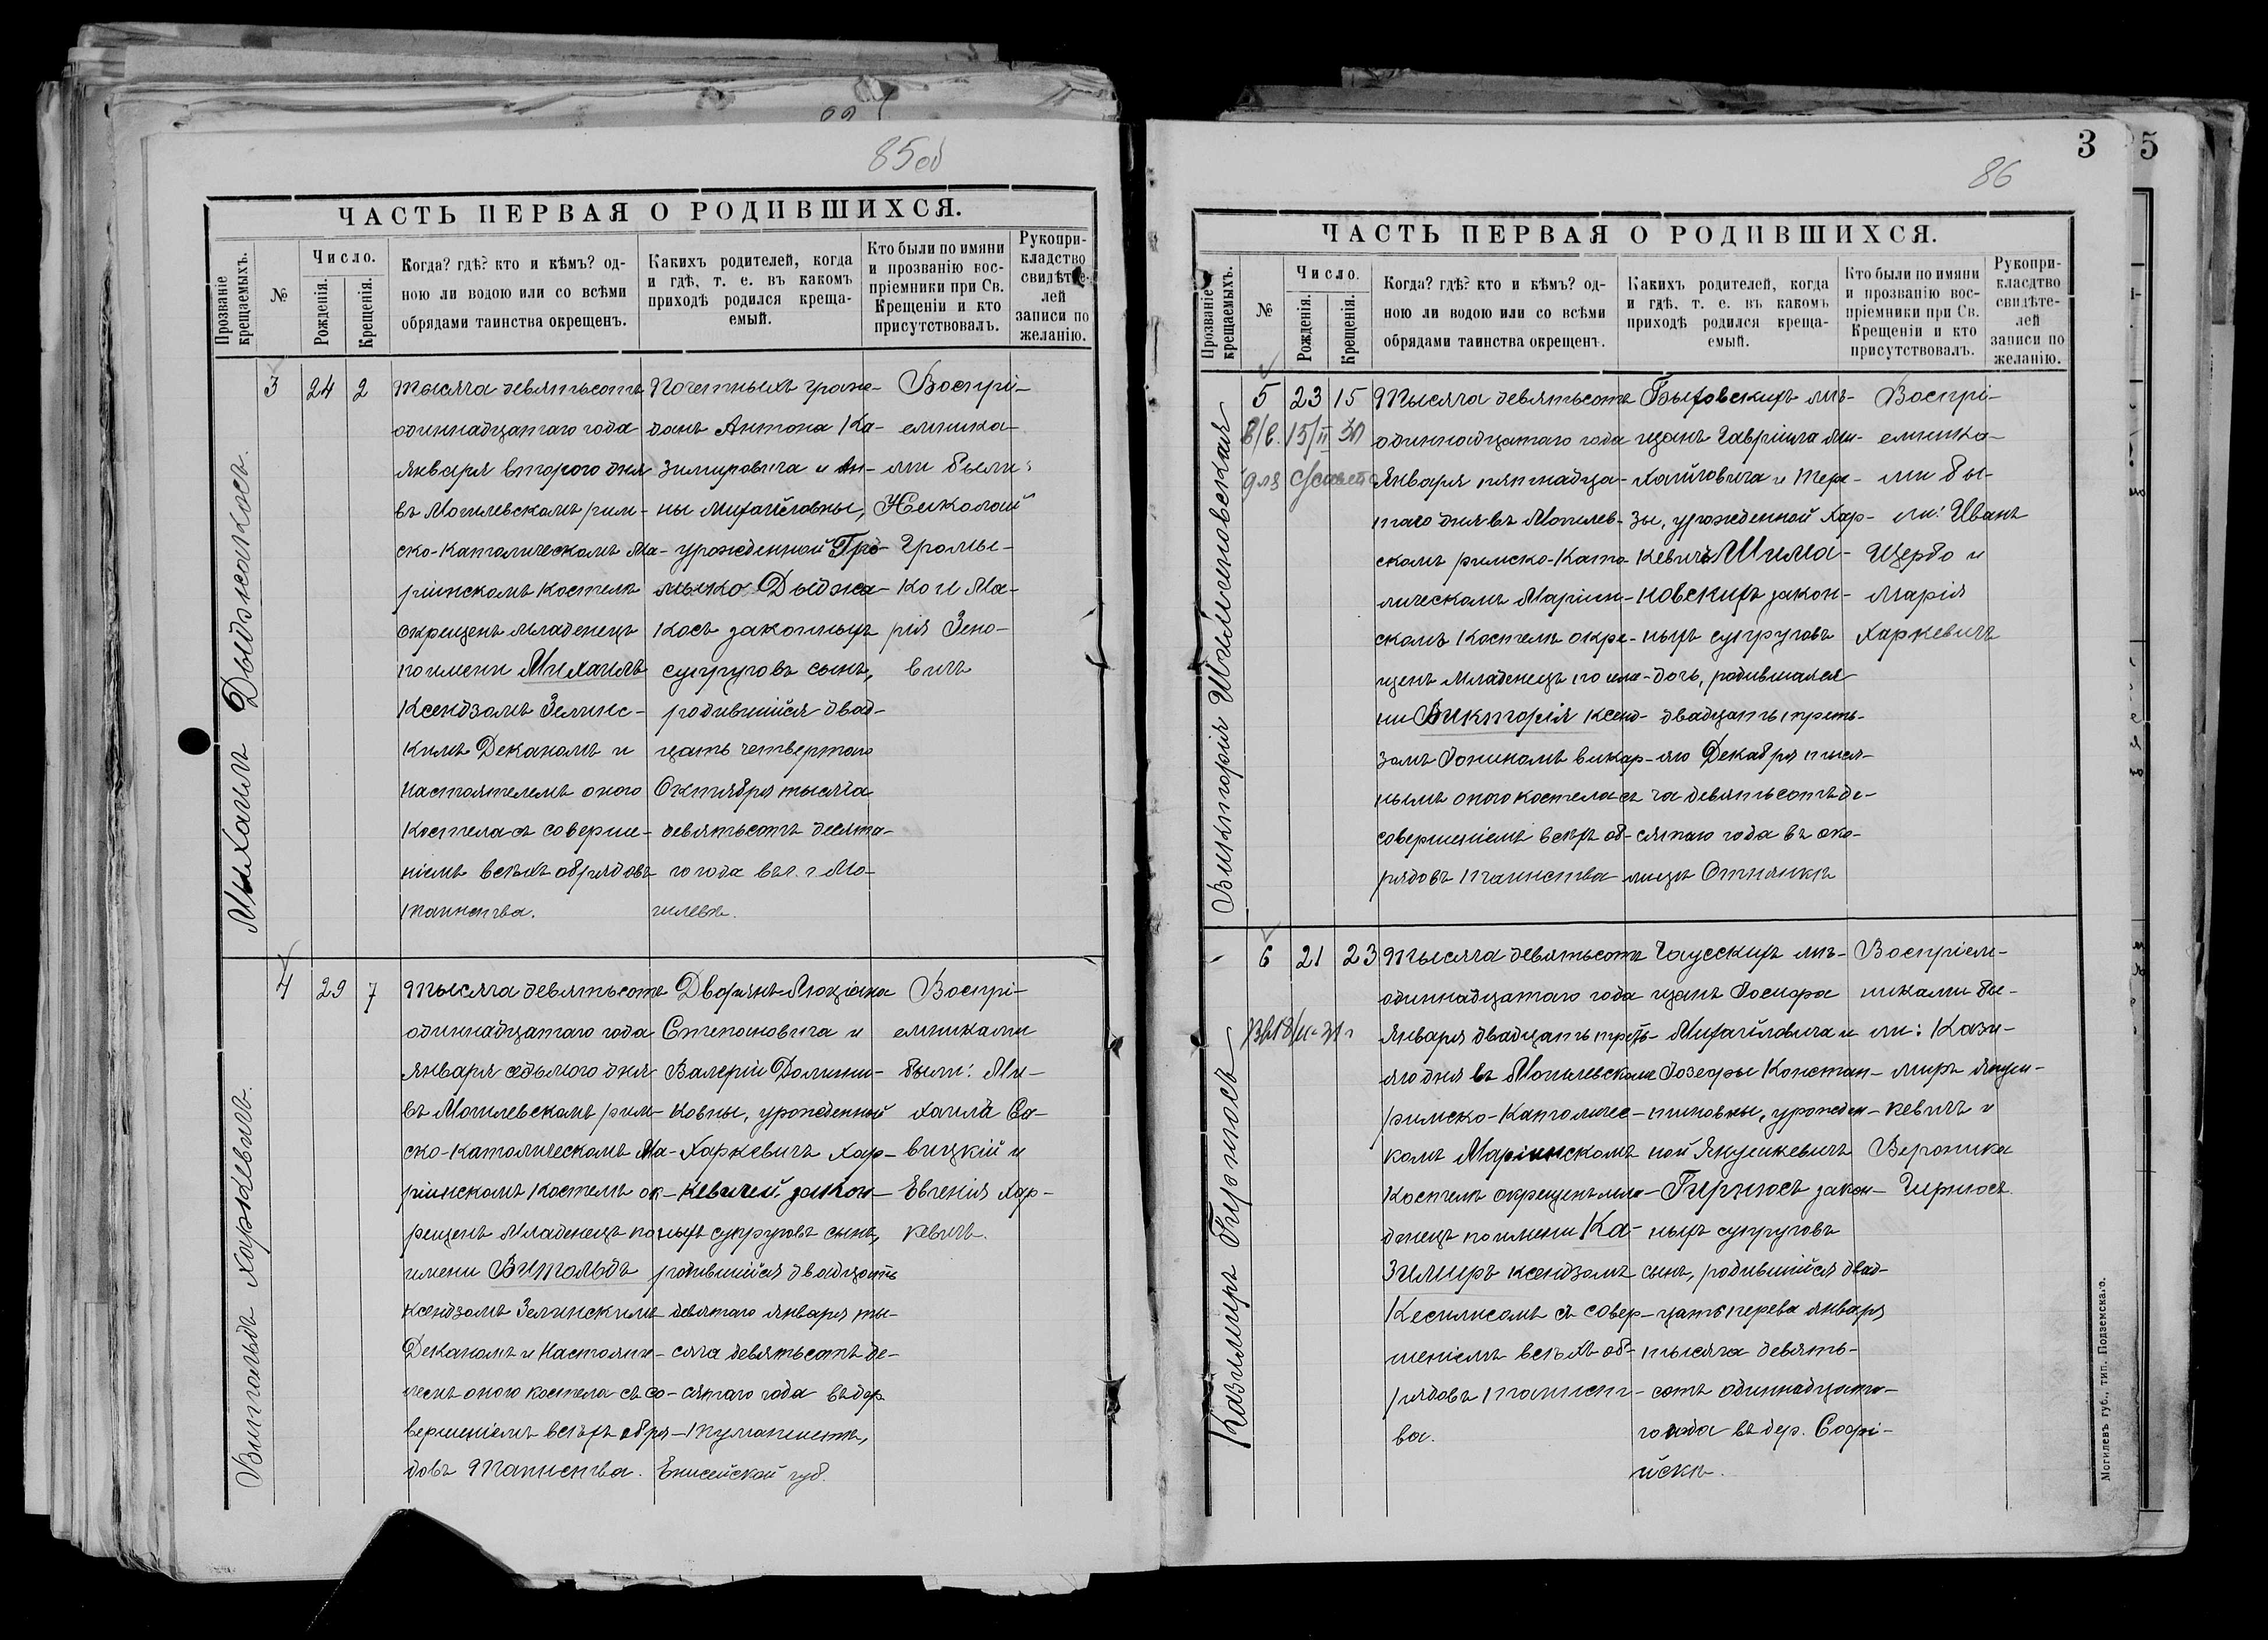 85об
ЧАСТЬ ПЕРВАЯ О РОДИВШИХСЯ.
Прозваніе крещаемыхъ.
№
Число.
Рожденія.
Крещенія.
Когда? гдѣ? кто и кѣмъ? од-
ною ли водою или со всѣми
обрядами таинства окрещенъ.
Какихъ родителей, когда
и гдѣ, т. е. въ какомъ
приходѣ родился креща-
емый.
Кто были по имяни
и прозванію вос-
пріемники при Св.
Крещеніи и кто
присутствовалъ.
Рукопри-
кладство
свидѣте-
лей
записи по
желанію.
Михаилъ Дыджакосъ.
3
24
2
Тысяча девятьсотъ
одиннадцатаго года
Января второго дня
въ Могилевскомъ рим-
ско-католическомъ Ма-
ріинскомъ костелѣ
окрещенъ младенецъ
по имени Михаилъ
Ксендзомъ Зелинс-
кимъ Деканомъ и
настоятелемъ оного
костела съ соверше-
ніемъ всѣхъ обрядовъ
таинства.
Почетныхъ граж-
данъ Антона Ка-
зимировича и Ан-
ны Михайловны,
урожденной Гро-
мыко Дыджа-
косъ законныхъ
супруговъ сынъ,
родившійся двад-
цать четвертаго
Октября тысяча
девятьсотъ десята-
го года въ г. Мо-
гилевѣ.
Воспрі-
емника-
ми были:
Николай
Громы-
ко и Ма-
рія Зено-
вичъ
Витольдъ Харкевичъ.
4
29
7
Тысяча девятьсотъ
одиннадцатаго года
Января седьмого дня
въ Могилевскомъ рим-
ско-католическомъ Ма-
ріинскомъ костелѣ ок-
рещенъ младенецъ по
имени Витольдъ
ксендзомъ Зелинскимъ
Деканомъ и Настояте-
лемъ оного костела съ со-
вершеніемъ всѣхъ обря-
довъ Таинства.
Дворянъ Люціана
Степановича и
Валеріи Домини-
ковны, урожденной
Харкевичъ Хар-
кевичей закон-
ныхъ супруговъ сынъ,
родившійся двадцать
девятаго января ты-
сяча девятьсотъ де-
сятаго года въ дер.
Енисейской губ.
Воспрі-
емниками
были: Ми-
хаилъ Са-
вицкій и
Евгенія Хар-
кевичъ.
86
3
5
ЧАСТЬ ПЕРВАЯ О РОДИВШИХСЯ.
Прозваніе крещаемыхъ.
№
Число.
Рожденія.
Крещенія.
Когда? гдѣ? кто и кѣмъ? од-
ною ли водою или со всѣми
обрядами таинства окрещенъ.
Какихъ родителей, когда
и гдѣ, т. е. въ какомъ
приходѣ родился креща-
емый.
Кто были по имяни
и прозванію вос-
пріемники при Св.
Крещеніи и кто
присутствовалъ.
Рукопри-
класдтво
свидѣте-
лей
записи по
желанію.
Викторія Шимановская
5
23
15
15/II 30
для
Тысяча девятьсотъ
одиннадцатаго года
Января пятнадца-
таго дня въ Могилев-
скомъ римско-Като-
лическомъ Маріин-
скомъ костелѣ окре-
щенъ младенецъ по име-
ни Викторія ксенд-
зомъ викар-
нымъ оного костела съ
совершеніемъ всѣхъ об-
рядовъ таинства
Быховскихъ мѣ-
щанъ Гавріила Ми-
хайловича и Тере-
зы, урожденной Хар-
кевичъ Шима-
новскихъ закон-
ныхъ супруговъ
дочь, родившаяся
двадцать треть-
яго Декабря тыся-
ча девятьсотъ де-
сятаго года въ око-
лицѣ Оттянкѣ
Воспрі-
емника-
ми бы-
ли: Иванъ
Щербо и
Марія
Харкевичъ
Казимиръ Гирпосъ
6
21
23
Тысяча девятьсотъ
одиннадцатаго года
Января двадцать треть-
яго дня въ Могилевскомъ
римско-Католичес-
комъ Маріинскомъ
костелѣ окрещенъ мла-
денецъ по имени Ка-
зимиръ ксендзомъ
съ совер-
шеніемъ всѣхъ об-
рядовъ таинст-
ва.
Чаусскихъ мѣ-
щанъ Іосифа
Михайловича и
Іозефы Констан-
тиновны, урожден-
ной Янушкевичъ
Гирпосъ закон-
ныхъ супруговъ
сынъ, родившійся двад-
цать перева января
тысяча девять-
сотъ одиннадцата-
го года въ дер. Софі-
йскѣ.
Воспріем-
никами бы-
ли: Кази-
миръ Януш-
кевичъ и
Вероника
Гирпосъ.
Могилевъ губ., тип. Подземскаго.